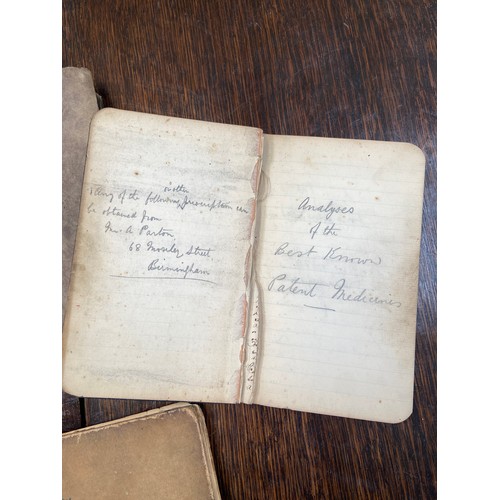 written
Any of the following prescription can
be obtained from
M. A Parton
68 Moseley Street
Birmingham
Analyses
of the
Best Known
Patent Medicines